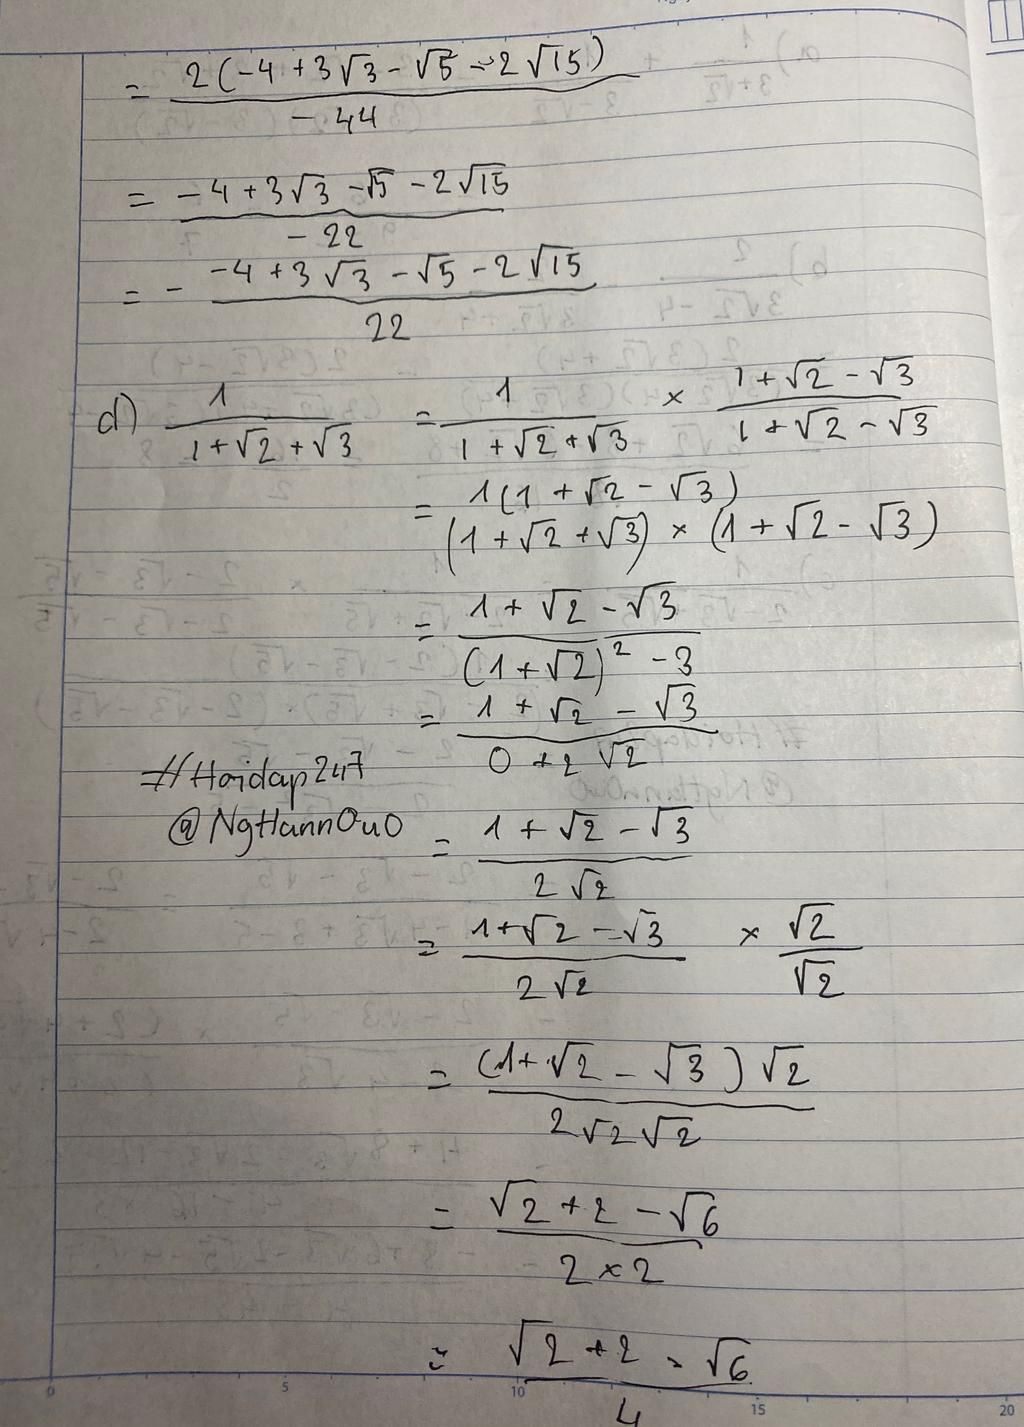 = 2(-4 + 3√3 - √5 - 2√15) / -44
= -4 + 3√3 - √5 - 2√15 / -22
= - -4 + 3√3 - √5 - 2√15 / 22
d) 1 / 1 + √2 + √3 = 1 / 1 + √2 + √3 × 1 + √2 - √3 / 1 + √2 - √3
= 1(1 + √2 - √3) / (1 + √2 + √3) × (1 + √2 - √3)
= 1 + √2 - √3 / (1 + √2)² - 3
= 1 + √2 - √3 / 0 + 2√2
#Hoidap247
@NgHannOuO
= 1 + √2 - √3 / 2√2
= 1 + √2 - √3 / 2√2 × √2 / √2
= (1 + √2 - √3)√2 / 2√2√2
= √2 + 2 - √6 / 2 × 2
= √2 + 2 - √6 / 4
0 5 10 15 20